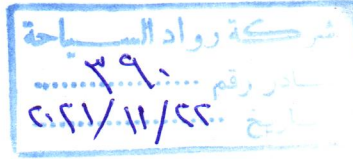 شركة رواد السياحة
صادر رقم ٣٩٠
تاريخ ٢٠٢١/١١/٢٢